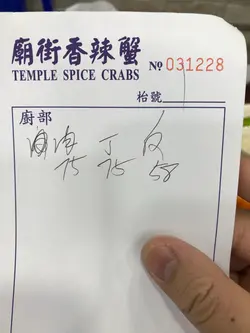 廟街香辣蟹
TEMPLE SPICE CRABS № 031228
枱號
廚部
75 75 58